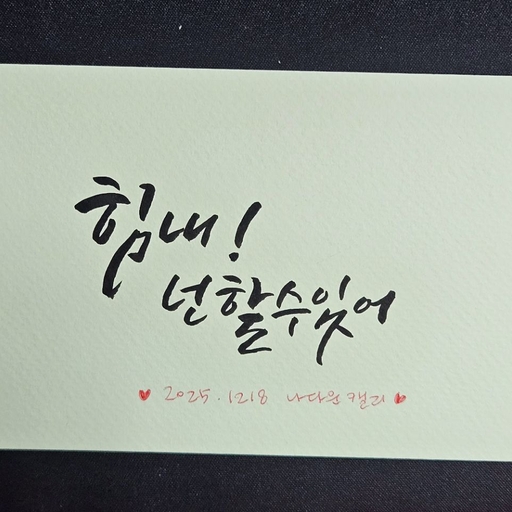 힘내!
넌할수잇어
♥ 2025.1218 나다움캘리 ♥